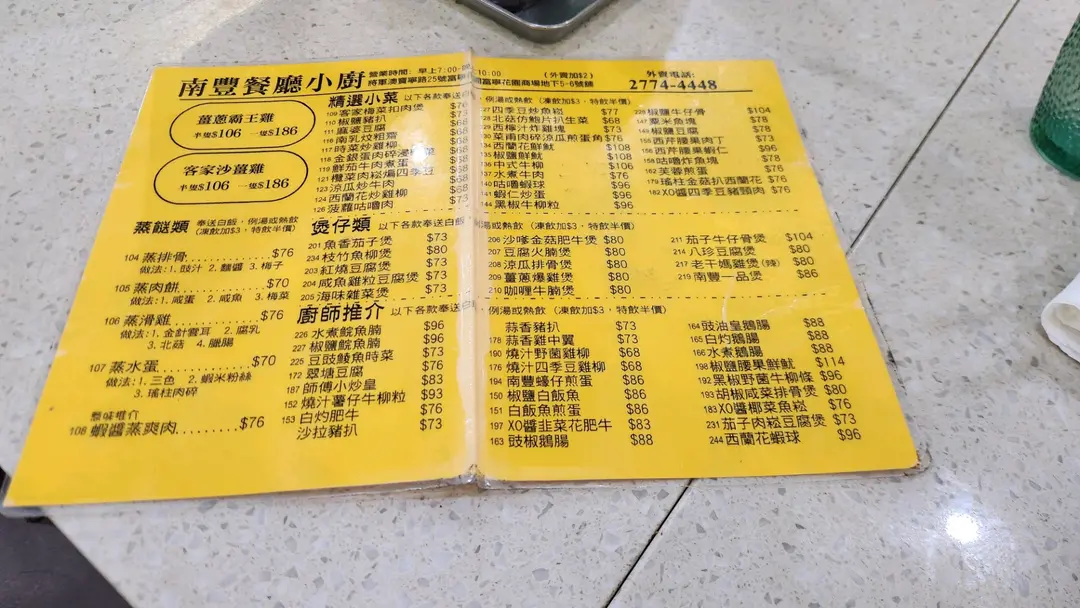 南豐餐廳小廚
營業時間: 早上7:00-
10:00
(外賣加$2)
外賣電話:
將軍澳寶寧路25號富寧
花園商場地下5-6號舖
2774-4448
薑蔥霸王雞
半隻$106 一隻$186
客家沙薑雞
半隻$106 一隻$186
精選小菜 以下各款奉送
例湯或熱飲 (凍飲加$3,特飲半價)
109 客家梅菜扣肉煲 $76
110 椒鹽豬扒 $73
111 麻婆豆腐 $68
116 南乳炆粗齋 $68
117 時菜炒雞柳
118 金銀蛋肉碎浸
119 鮮茄牛肉煮蛋
121 欖菜肉崧煸四季豆
123 涼瓜炒牛肉 $68
124 西蘭花炒雞柳 $68
126 菠蘿咕嚕肉 $73
127 四季豆炒魚崧 $77
128 北菇仿鮑片扒生菜 $68
129 西檸汁炸雞塊 $73
130 菜甫肉碎涼瓜煎蛋角 $76
134 西蘭花鮮魷 $108
135 椒鹽鮮魷 $108
136 中式牛柳 $106
137 水煮牛肉 $76
140 咕嚕蝦球 $96
141 蝦仁炒蛋 $96
144 黑椒牛柳粒 $96
228 椒鹽牛仔骨 $104
147 粟米魚塊 $78
149 椒鹽豆腐 $78
156 西芹腰果肉丁 $73
西芹腰果蝦仁 $96
158 咕嚕炸魚塊 $78
162 芙蓉煎蛋 $76
179 瑤柱金菇扒西蘭花 $76
182 XO醬四季豆豬頸肉 $76
蒸餸類 奉送白飯,例湯或熱飲
(凍飲加$3,特飲半價)
104 蒸排骨 $76
做法: 1. 豉汁 2. 麵醬 3. 梅子
105 蒸肉餅 $70
做法: 1. 咸蛋 2. 咸魚 3. 梅菜
106 蒸滑雞 $76
做法: 1. 金針雲耳 2. 腐乳
3. 北菇 4. 臘腸
107 蒸水蛋 $70
做法: 1. 三色 2. 蝦米粉絲
3. 瑤柱肉碎
108 蝦醬蒸爽肉 $76
煲仔類 以下各款奉送白飯
例湯或熱飲 (凍飲加$3,特飲半價)
201 魚香茄子煲 $73
234 枝竹魚柳煲 $80
203 紅燒豆腐煲 $73
204 咸魚雞粒豆腐煲 $73
205 海味雜菜煲 $73
206 沙嗲金菇肥牛煲 $80
207 豆腐火腩煲 $80
208 涼瓜排骨煲 $80
209 薑蔥爆雞煲 $80
210 咖喱牛腩煲 $80
211 茄子牛仔骨煲 $104
214 八珍豆腐煲 $80
217 老干媽雞煲(辣) $80
219 南豐一品煲 $86
廚師推介 以下各款奉送白
例湯或熱飲 (凍飲加$3,特飲半價)
226 水煮鯇魚腩 $96
227 椒鹽鯇魚腩 $96
225 豆豉鯪魚時菜 $73
172 翠塘豆腐 $76
187 師傅小炒皇 $83
152 燒汁薯仔牛柳粒 $93
153 白灼肥牛 $76
沙拉豬扒 $73
蒜香豬扒 $73
178 蒜香雞中翼 $73
190 燒汁野菌雞柳 $68
176 燒汁四季豆雞柳 $68
194 南豐蠔仔煎蛋 $86
150 椒鹽白飯魚 $86
151 白飯魚煎蛋 $86
197 XO醬韭菜花肥牛 $83
163 豉椒鵝腸 $88
164 豉油皇鵝腸 $88
165 白灼鵝腸 $88
166 水煮鵝腸 $88
198 椒鹽腰果鮮魷 $114
192 黑椒野菌牛柳條 $96
193 胡椒咸菜排骨煲 $80
183 XO醬椰菜魚崧 $76
231 茄子肉崧豆腐煲 $73
244 西蘭花蝦球 $96